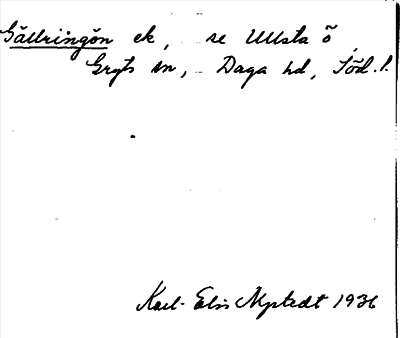 Gällringön ek, se Ullsta ö,
Gryts sn, Daga hd, Söd. l.
Karl-Elis Nystedt 1936